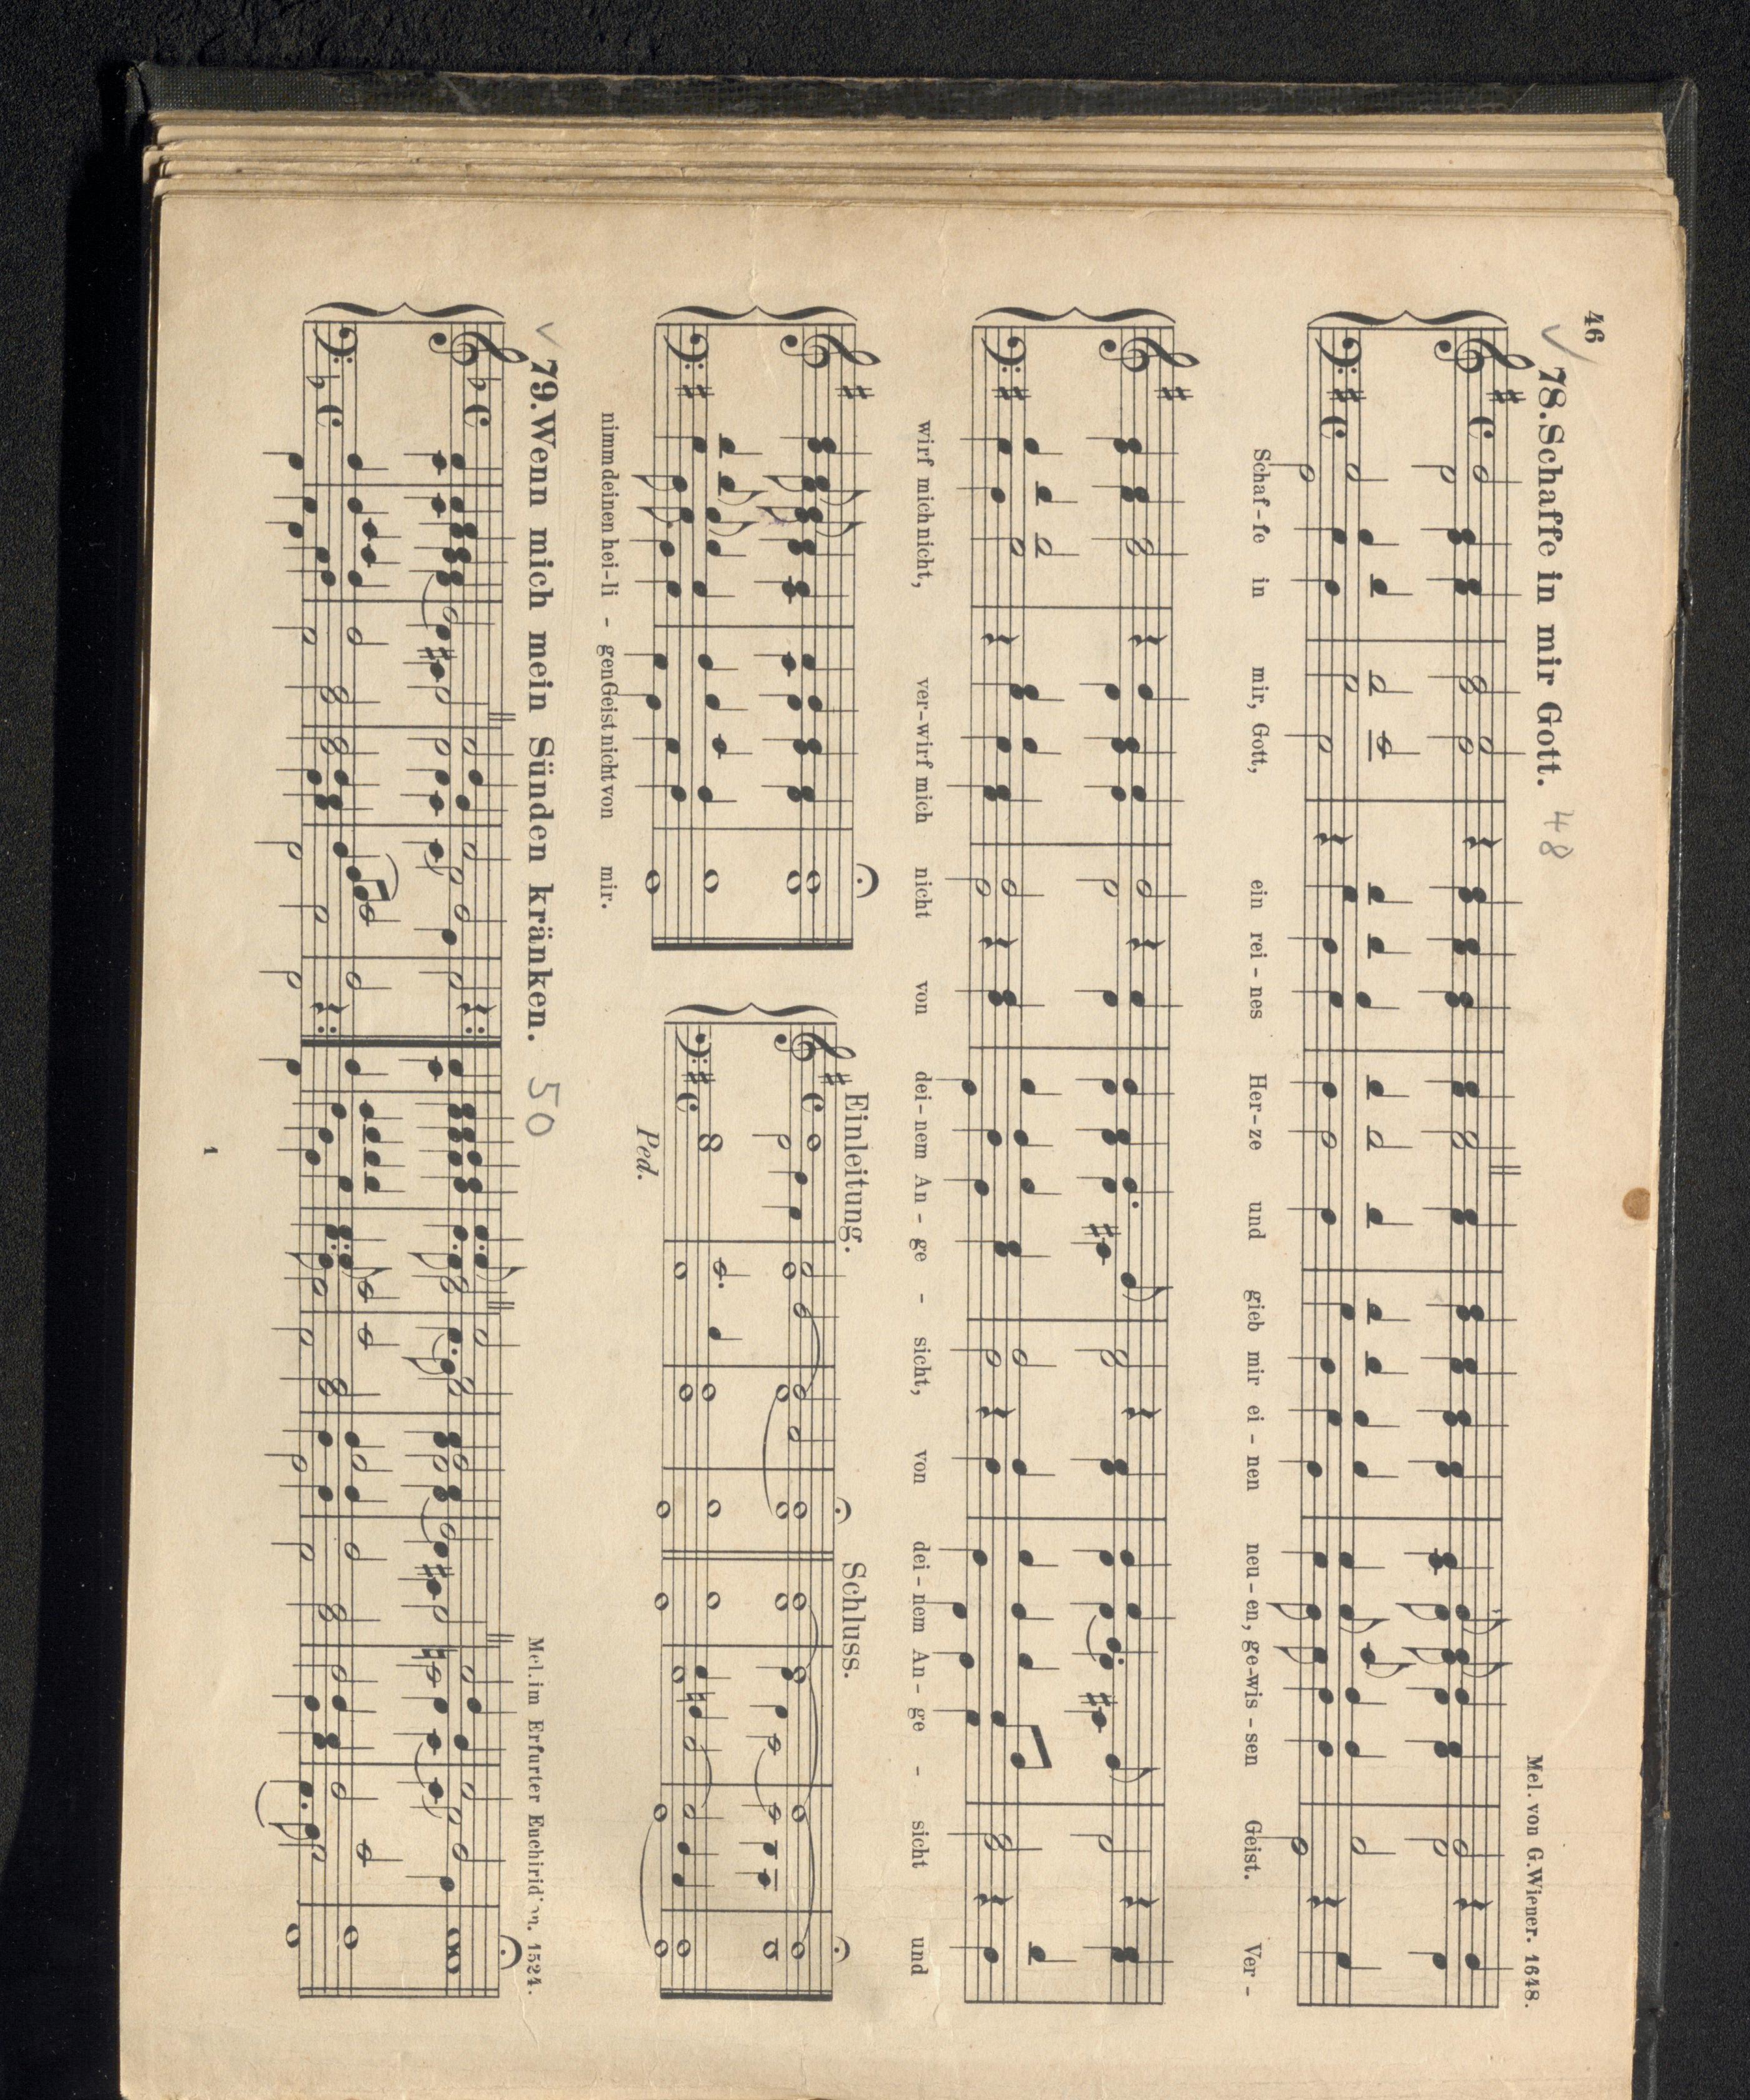 46
78. Schaffe in mir Gott. 48
Mel. von G. Wiener. 1648.
Schaf - fe in mir, Gott, ein rei - nes Her - ze und gieb mir ei - nen neu - en, ge - wis - sen Geist. Ver -
wirf mich nicht, ver - wirf mich nicht von dei - nem An - ge - sicht, von dei - nem An - ge - sicht und
nimm deinen hei - li - gen Geist nicht von mir.
Einleitung.
Schluss.
Ped.
79. Wenn mich mein Sünden kränken. 50
Mel. im Erfurter Enchiridion. 1524.
1